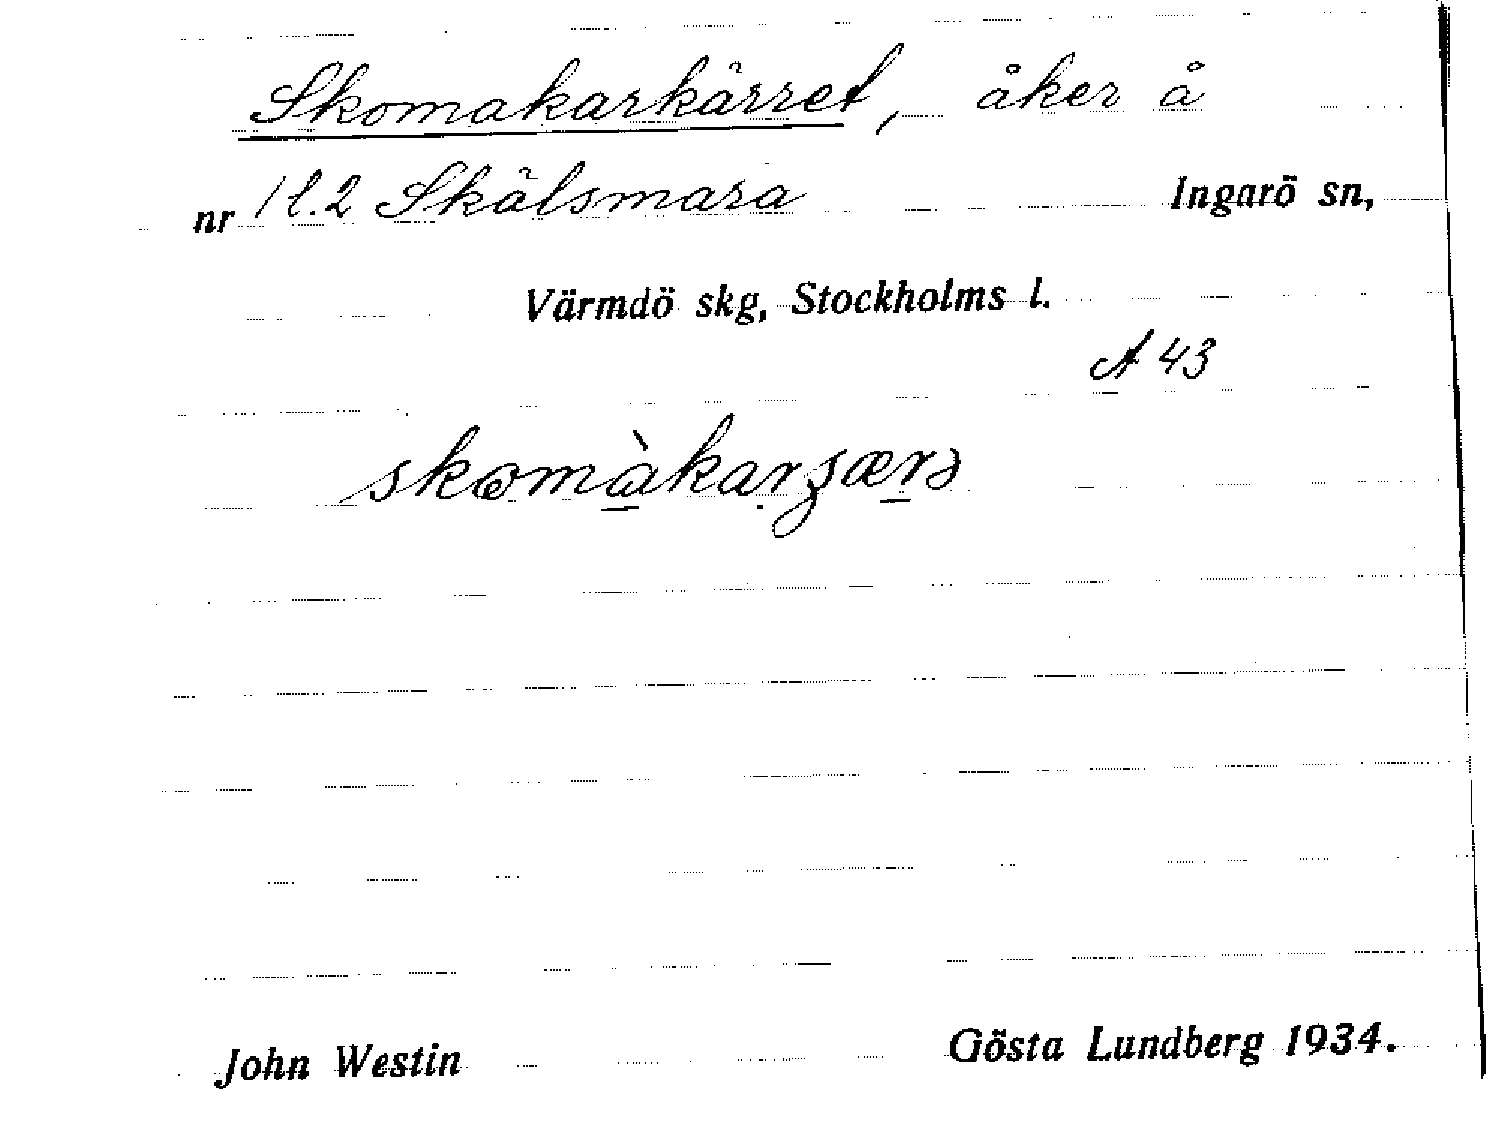 Skomakarkärret, åker å
nr 1 l.2 Skälsmara Ingarö sn,
Värmdö skg, Stockholms l.
A 43
John Westin Gösta Lundberg 1934.